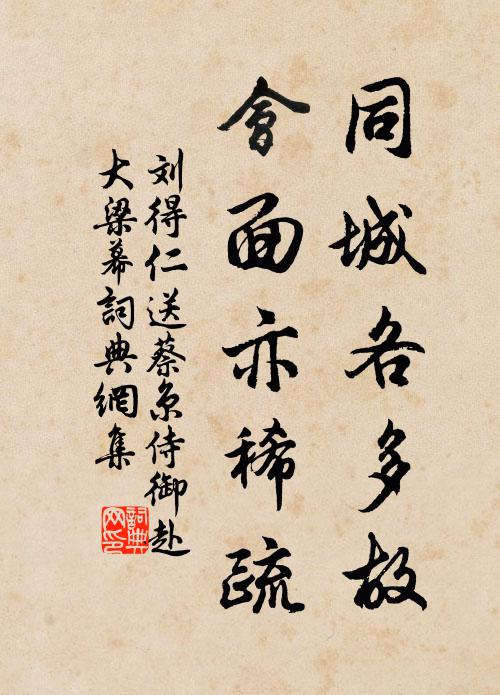 同城各多故
會面亦稀疏
刘得仁送蔡京侍御赴
大梁幕詞典網集
詞典
网印